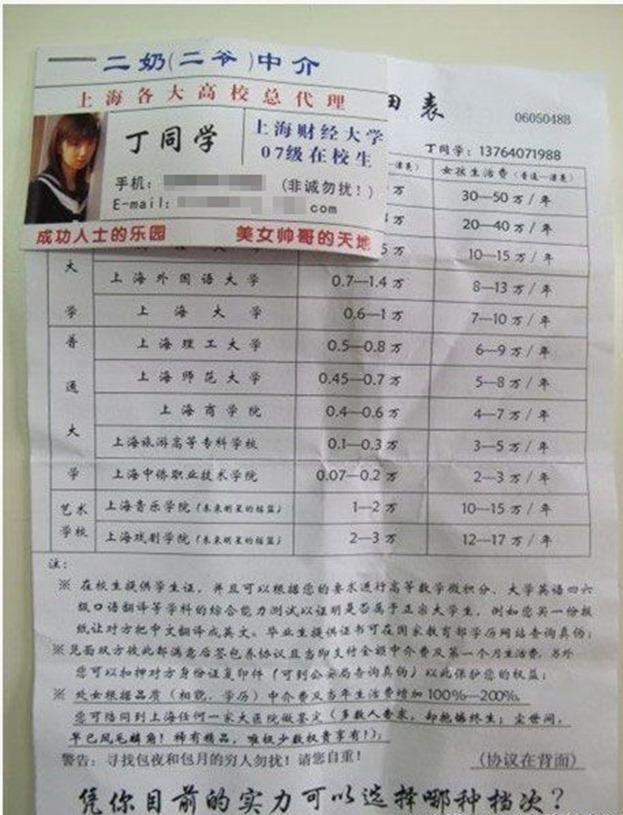 二奶(二爷)中介
上海各大高校总代理
丁同学
上海财经大学
07级在校生
手机:
(非诚勿扰!)
E-mail:
com
成功人士的乐园 美女帅哥的天地
表
0605048B
丁同学: 13764071988
女孩生活费
万 30—50 万 / 年
万 20—40 万 / 年
5 万 10—15 万 / 年
大学 上海外国语大学 0.7—1.4 万 8—13 万 / 年
上海大学 0.6—1 万 7—10 万 / 年
普通大学 上海理工大学 0.5—0.8 万 6—9 万 / 年
上海师范大学 0.45—0.7 万 5—8 万 / 年
上海商学院 0.4—0.6 万 4—7 万 / 年
上海旅游高等专科学校 0.1—0.3 万 3—5 万 / 年
上海中侨职业技术学院 0.07—0.2 万 2—3 万 / 年
艺术学校 上海音乐学院 (未来明星的摇篮) 1—2 万 10—15 万 / 年
上海戏剧学院 (未来明星的摇篮) 2—3 万 12—17 万 / 年
注:
※ 在校生提供学生证，并且可以根据您的要求进行高等数学微积分、大学英语四六
级口语翻译等学科的综合能力测试以证明是否属于正宗大学生，例如您买一份报
纸让对方把中文翻译成英文。毕业生提供证书可在国家教育部学历网站查询真伪;
※ 见面双方彼此都满意后签包养协议且当即支付全额中介费及第一个月生活费，另外
您可以扣押对方身份证复印件 (可到公安局查询真伪) 以此保护您的权益;
※ 处女根据品质 (相貌、学历) 中介费及当年生活费增加 100%—200%。
您可陪同到上海任何一家大医院做鉴定 (多数人奢求，却抱憾终生; 尘世间，
早已凤毛麟角! 稀有精品，唯极少数权贵享有!);
警告: 寻找包夜和包月的穷人勿扰! 请您自重!
(协议在背面)
凭你目前的实力可以选择哪种档次?